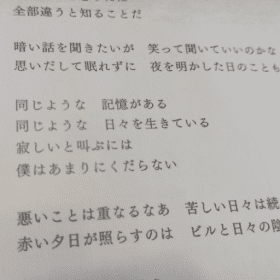 全部違うと知ることだ
暗い話を聞きたいが 笑って聞いていいのかな
思いだして眠れずに 夜を明かした日のことも
同じような 記憶がある
同じような 日々を生きている
寂しいと叫ぶには
僕はあまりにくだらない
悪いことは重なるなあ 苦しい日々は続
赤い夕日が照らすのは ビルと日々の陰